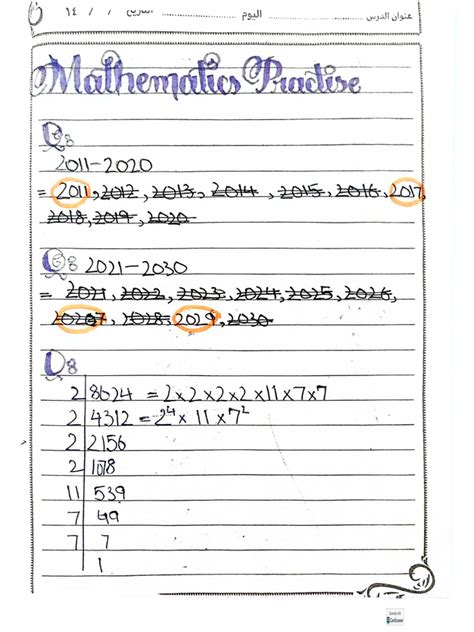 عنوان الدرس ........ اليوم ........ التاريخ / / ١٤
Mathematics Practise
Q:
2011-2020
= 2011, 2012, 2013, 2014, 2015, 2016, 2017,
2018, 2019, 2020
Q: 2021-2030
= 2021, 2022, 2023, 2024, 2025, 2026,
2027, 2028, 2029, 2030
Q:
2 | 8624 = 2x2x2x2x11x7x7
2 | 4312 = 2⁴x11x7²
2 | 2156
2 | 1078
11 | 539
7 | 49
7 | 7
1
CamScanner